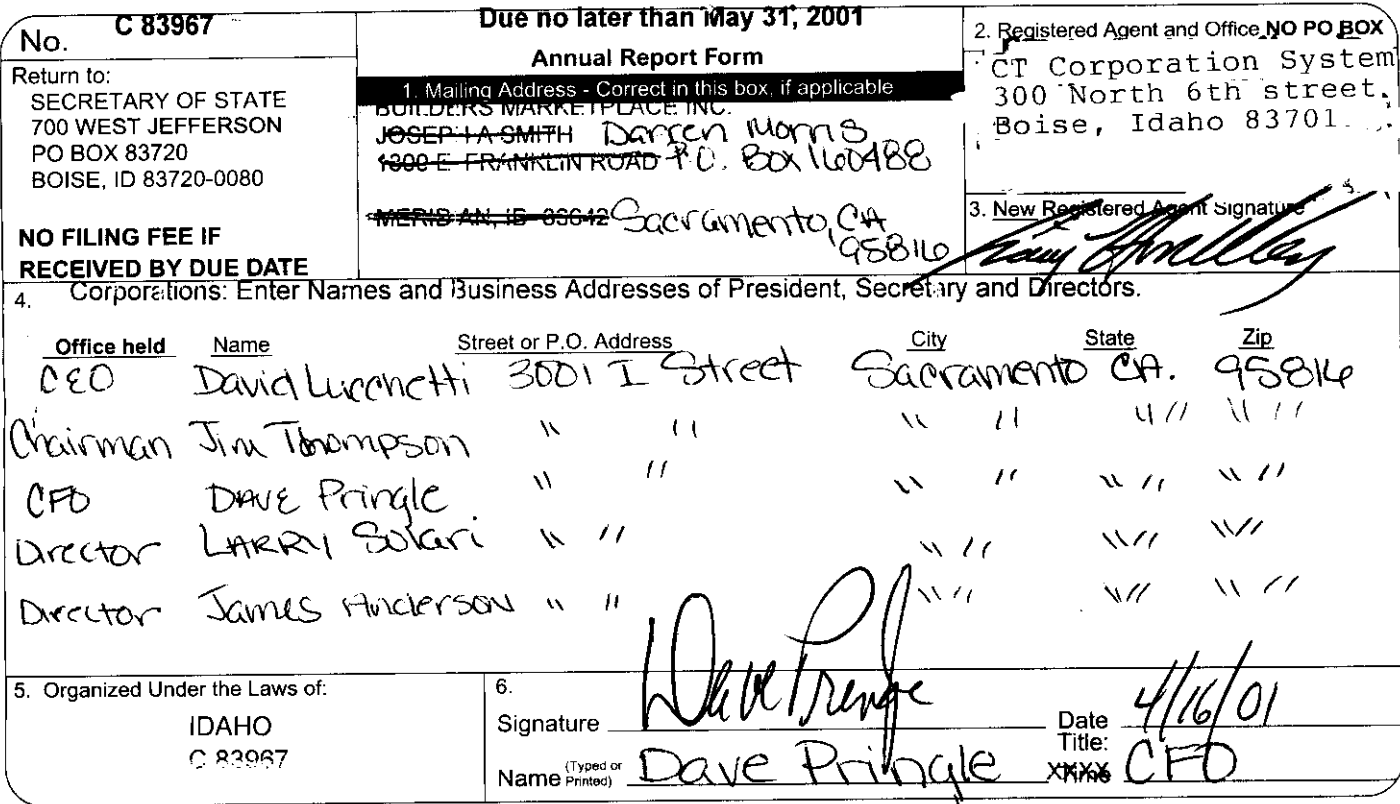 No. C 83967
Return to:
SECRETARY OF STATE
700 WEST JEFFERSON
PO BOX 83720
BOISE, ID 83720-0080
NO FILING FEE IF
RECEIVED BY DUE DATE
Due no later than May 31, 2001
Annual Report Form
1. Mailing Address - Correct in this box, if applicable
BUILDERS MARKETPLACE INC.
JOSEPH A SMITH Darren Morris
1300 E. FRANKLIN ROAD P.O. Box 160488
MERIDIAN, ID 83642 Sacramento, CA
95816
2. Registered Agent and Office NO PO BOX
CT Corporation System
300 North 6th street.
Boise, Idaho 83701
3. New Registered Agent Signature
4. Corporations: Enter Names and Business Addresses of President, Secretary and Directors.
Office held Name Street or P.O. Address City State Zip
CEO David Lucchetti 3001 I Street Sacramento CA. 95816
Chairman Jim Thompson " " " " " " " "
CFO Dave Pringle " " " " " " " "
Director Larry Solari " " " " " " " "
Director James Anderson " " " " " " " "
5. Organized Under the Laws of:
IDAHO
C 83967
6.
Signature Dave Pringle Date 4/16/01
Name (Typed or Printed) Dave Pringle Title: CFO